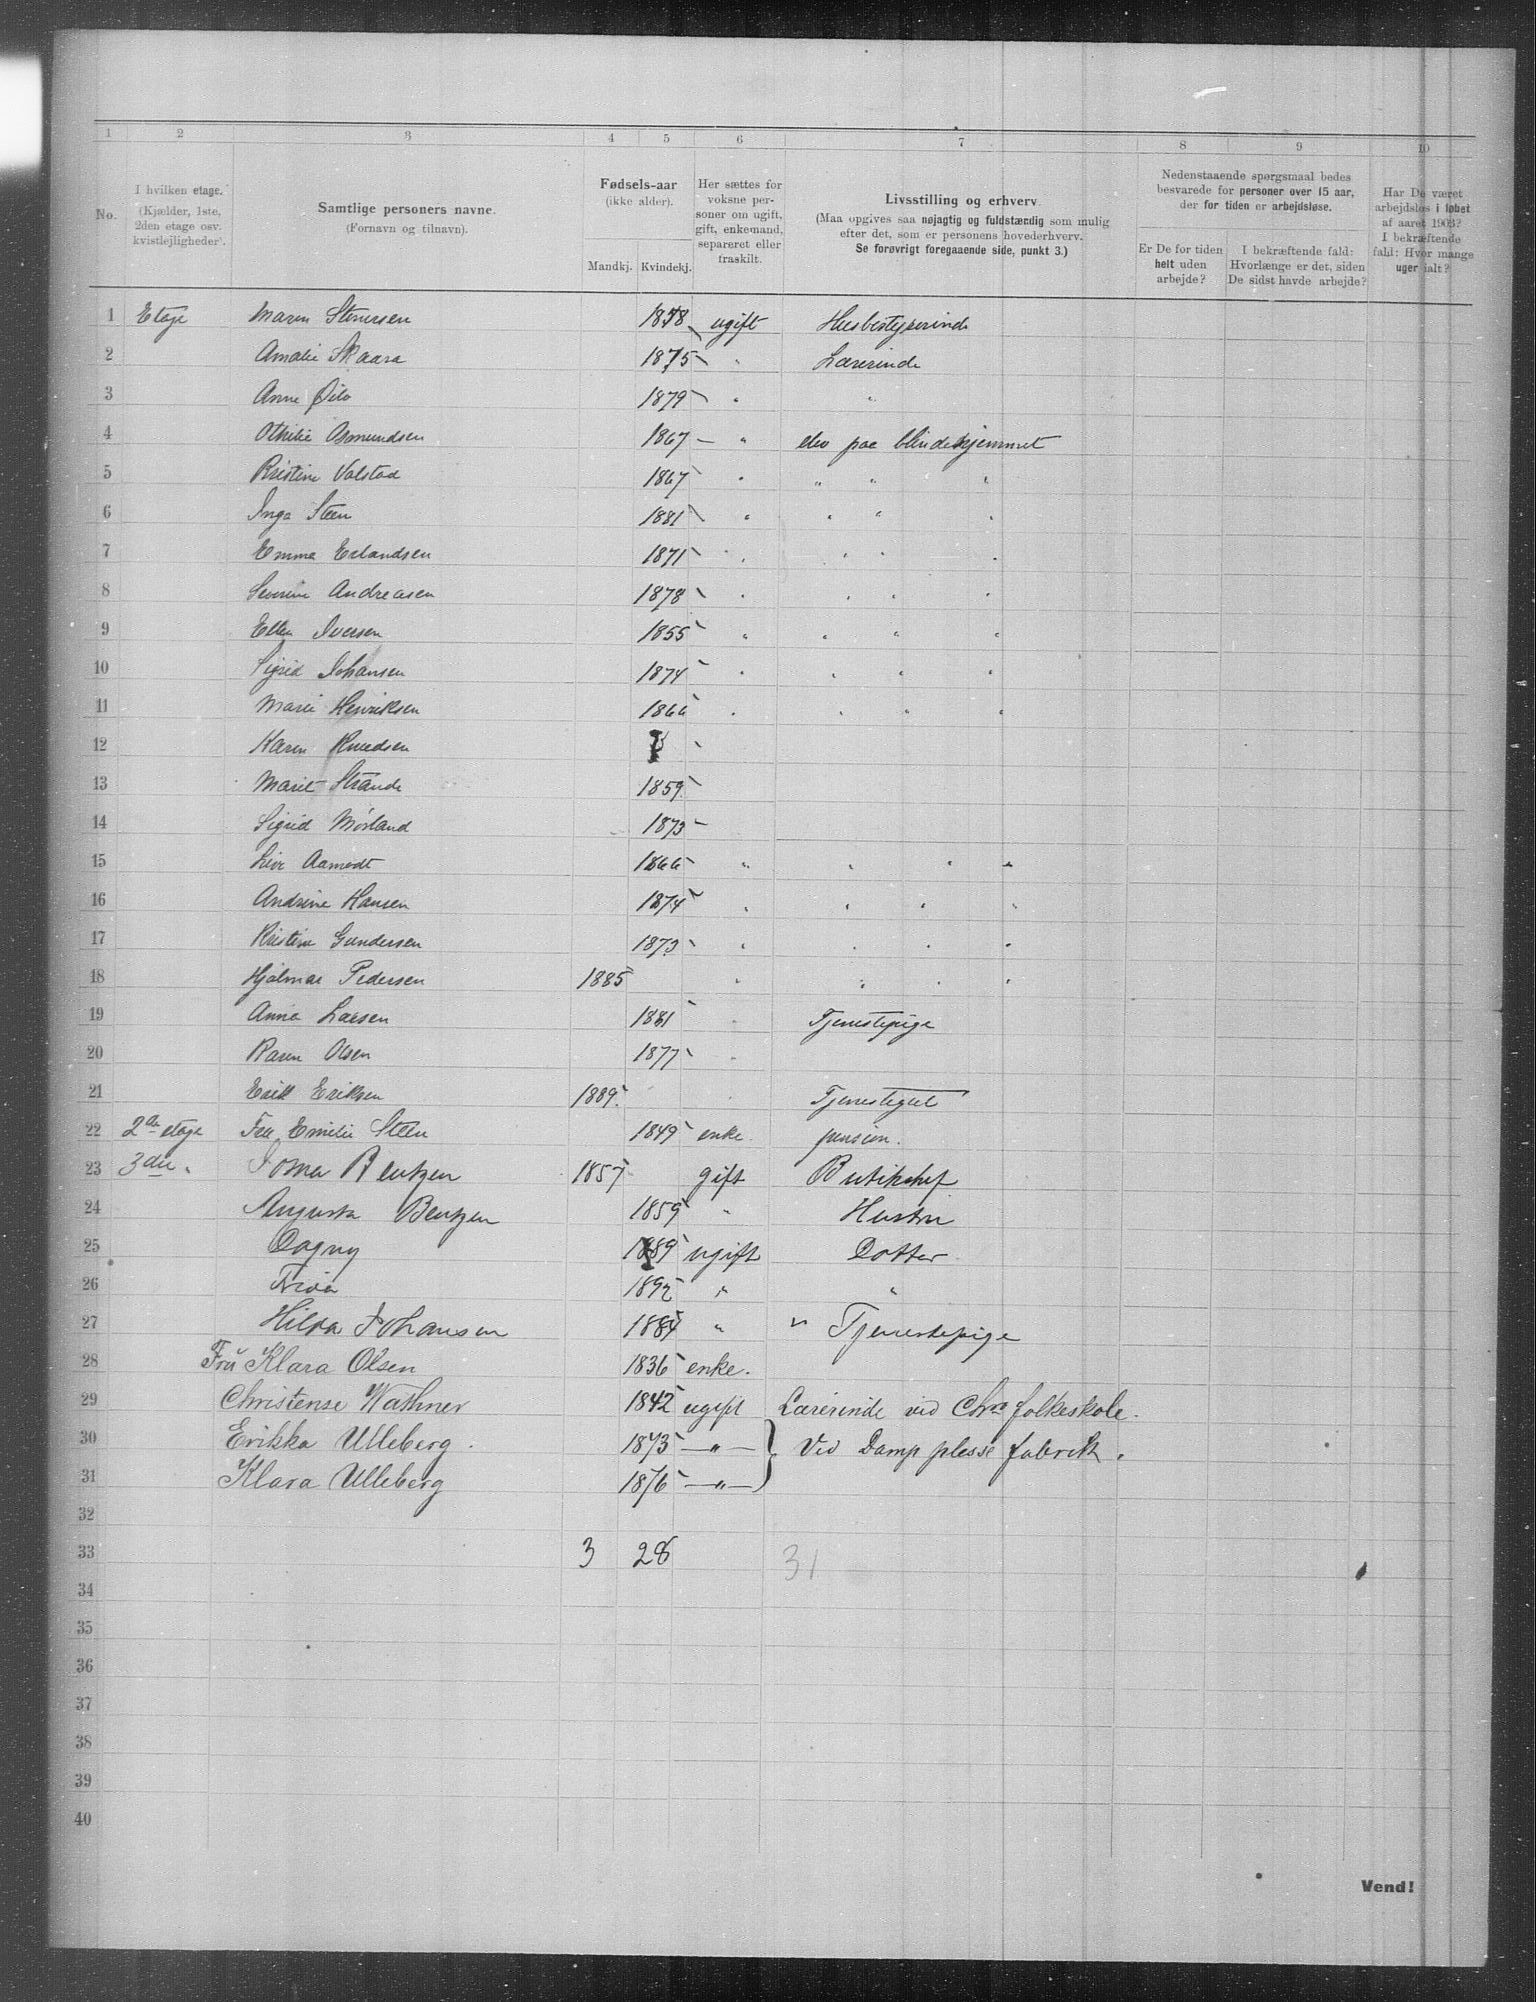 1 2 3 4 5 6 7 8 9 10
No.
I hvilken etage.
(Kjælder, 1ste,
2den etage osv.
kvistlejligheder).
Samtlige personers navne.
(Fornavn og tilnavn).
Fødsels-aar
(ikke alder).
Mandkj. Kvindekj.
Her sættes for
voksne per-
soner om ugift,
gift, enkemand,
separeret eller
fraskilt.
Livsstilling og erhverv.
(Maa opgives saa nøjagtig og fuldstændig som mulig
efter det, som er personens hovederhverv.
Se forøvrigt foregaaende side, punkt 3.)
Nedenstaaende spørgsmaal bedes
besvarede for personer over 15 aar,
der for tiden er arbejdsløse.
Er De for tiden
helt uden
arbejde?
I bekræftende fald:
Hvorlænge er det, siden
De sidst havde arbejde?
Har De været
arbejdsløs i løbet
af aaret 1903?
I bekræftende
fald: Hvor mange
uger ialt?
1 Etage Maren Stenersen 1878 ugift Husbestyrerinde
2 Amalie Skaara 1875 " Lærerinde
3 Anne 1879 " "
4 Othilie Osmundsen 1867 — " elev paa blindehjemmet
5 Kristine Valstad 1867 " " " "
6 Inga Steen 1881 " " " "
7 Emma Erlandsen 1871 " " " "
8 Severine Andreasen 1878 " " " "
9 Ellen Iversen 1855 " " " "
10 Sigrid Johansen 1874 " " " "
11 Marie Henriksen 1866 " " " "
12 Karen Knudsen
13 Marit Strande 1859
14 Sigrid Mørland 1873
15 Live Aamodt 1866 " " " "
16 Andrine Hansen 1874 " " " "
17 Kristine Gundersen 1873 " " " "
18 Hjalmar Pedersen 1885 " " " "
19 Anna Larsen 1881 " Tjenestepige
20 Karen Olsen 1877 "
21 Erik Eriksen 1889 " Tjenestegut
22 2den etage Fru Emilie Steen 1849 enke pension.
23 3die " Bentzen 1857 gift Butikchef
24 Augusta Bentzen 1859 " Hustru
25 Dagny 1889 ugift Datter
26 1892 " "
27 Hilda Johansen 1884 " " Tjenestepige
28 Fru Klara Olsen 1836 enke.
29 Christense Wathner 1842 ugift Lærerinde ved Chra folkeskole.
30 Erikka Ulleberg. 1873 —"— } Ved Damp plesse fabrik.
31 Klara Ulleberg 1876 —"—
32
33 3 28 31
34
35
36
37
38
39
40
Vend!